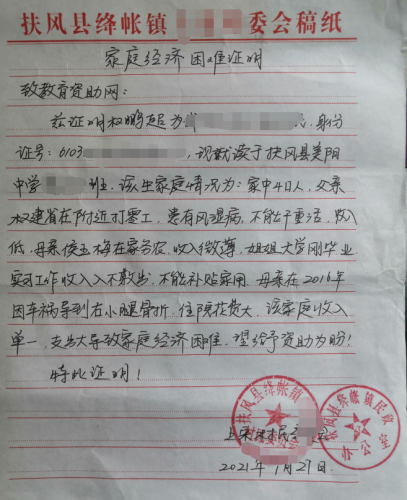 扶风县绛帐镇 委会稿纸
家庭经济困难证明
致教育资助网：
兹证明权鹏超为 ，身份
证号：6103 ，现就读于扶风县美阳
中学 班。该生家庭情况为：家中4口人，父亲
权建省在附近打零工，患有风湿病，不能干重活，收入
低，母亲侯玉梅在家务农，收入微薄，姐姐大学刚毕业
实习工作收入入不敷出，不能补贴家用。母亲在2016年
因车祸导致右小腿骨折，住院花费大，该家庭收入
单一，支出大导致家庭经济困难，望给予资助为盼！
特此证明！
扶风县绛帐镇
扶风县绛帐镇民政
办公室
村民委 会
2021年1月27日.